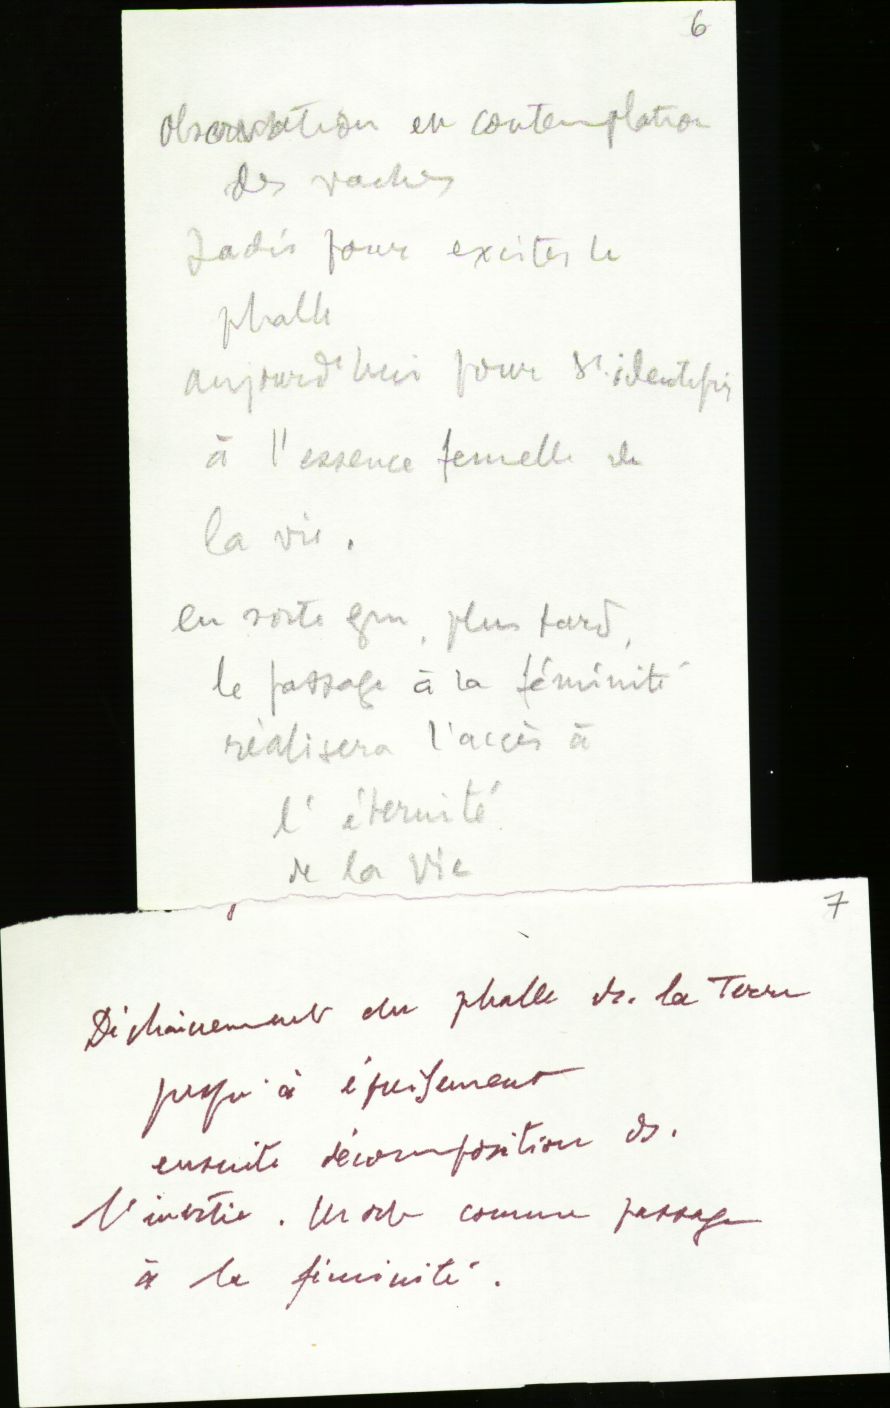 6
observation en contemplation
des vaches
Jadis pour exciter le
phalle
aujourd'hui pour s'identifier
à l'essence femelle de
la vie.
en sorte que, plus tard,
le passage à la féminité
réalisera l'accès à
l'éternité
de la Vie
7
Déchainement du phalle ds. la Terre
jusqu'à épuisement
ensuite décomposition ds.
l'inertie. Mort comme passage
à la féminité.